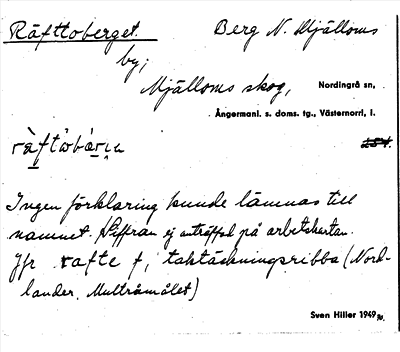 Räfttoberget. Berg N. Mjälloms
by,
Mjälloms skog, Nordingrå sn,
Ångermanl. s. doms. tg., Västernorrl. l.
254.
Ingen förklaring kunde lämnas till
namnet. Siffran ej anträffad på arbetskartan.
Jfr rafte f, taktäckningsribba (Nord-
lander, Multråmålet)
Sven Hiller 1949